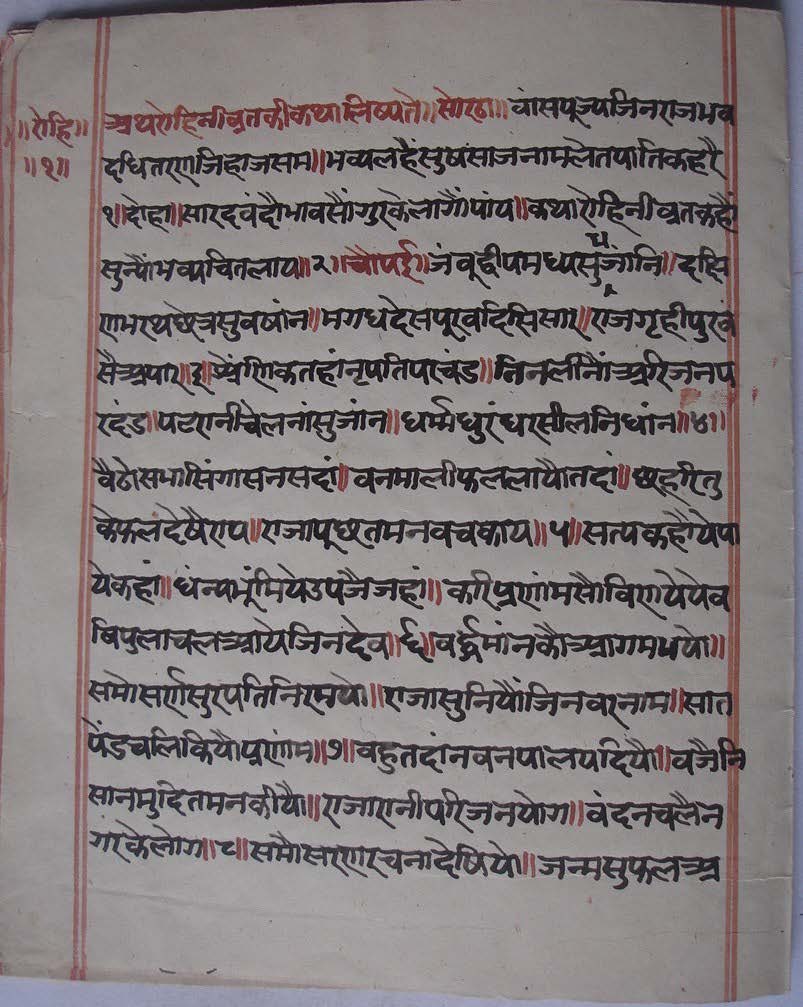 ॥रोहि॥
॥१॥
अथरोहिनीव्रतकीकथालिष्यते॥सोरठा॥वांसपूज्यजिनराजभव
दधितरणजिहाजसम॥भव्यलहैंसुषसाजनामलेतपातिकहरै
१॥दोहा॥सारदवंदौभावसौंगुरकेलागौंपांय॥कथारोहिनीव्रतकहौं
सुन्यौंभव्यचितलाय॥२॥चौपई॥जंवूद्वीपमध्यसुजांनि॥दछि
णभरथछेत्रसुवषांन॥मगधदेसपूरवदिसिसार॥राजगृहीपुरव
सैअपार॥३॥श्रेणिकतहांनृपतिपरचंड॥तिनलीनौंअरिजनप
रदंड॥पटरानीचेलनांसुजांन॥धर्म्मधुरंधरसीलनिधांन॥४॥
वैठोसभासिंगासनसदां॥वनमालीफललायौतदां॥छहरितु
केफलदेषेराय॥राजापूछतमनवचकाय॥५॥सत्यकहौयेपा
येकहां॥धंन्यभूंमियेउपजैजहां॥करिप्रणांमसौविणयेयेव
विपुलाचलआयेजिनदेव॥६॥वर्द्धमांनकौआगमभयो॥
समोसर्णसुरपतिनिरमयो॥राजासुनियौंजिनवरनाम॥सात
पेंडचलिकियौप्रणांम॥७॥वहुतदांनवनपालयदियौ॥वजैनि
सानमुदितमनकीयौ॥राजारानीपरिजनयोग॥वंदनचलेन
गरकेलोग॥८॥समौसरणरचनादेषियो॥जन्मसुफलअ